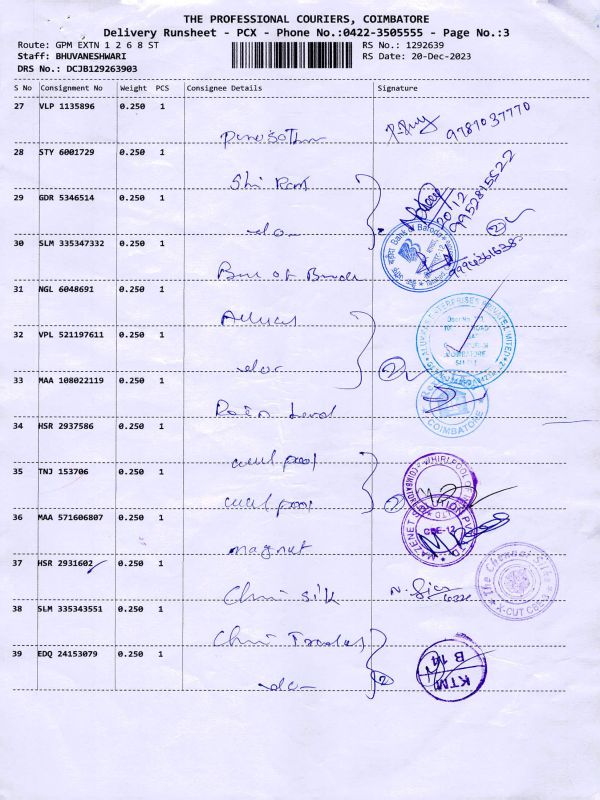 THE PROFESSIONAL COURIERS, COIMBATORE
Delivery Runsheet - PCX - Phone No.:0422-3505555 - Page No.:3
Route: GPM EXTN 1 2 6 8 ST
RS No.: 1292639
Staff: BHUVANESHWARI
RS Date: 20-Dec-2023
DRS No.: DCJB129263903
S No Consignment No Weight PCS Consignee Details Signature
27 VLP 1135896 0.250 1
9787037770
28 STY 6001729 0.250 1
Shri Ram
20/12
9952815522
29 GDR 5346514 0.250 1
-do-
2
Bank of Baroda
30 SLM 335347332 0.250 1
Bank of Baroda
31 NGL 6048691 0.250 1
32 VPL 521197611 0.250 1
-do-
2
COIMBATORE
33 MAA 108022119 0.250 1
COIMBATORE
34 HSR 2937586 0.250 1
whirlpool
35 TNJ 153706 0.250 1
whirlpool
2
36 MAA 571606807 0.250 1
magnet
CBE-12
37 HSR 2931602 0.250 1
Chennai Silk
The Chennai Silks
X-CUT CBE-3
38 SLM 335343551 0.250 1
Chennai Traders
39 EDQ 24153079 0.250 1
-do-
2
KTM
B 14